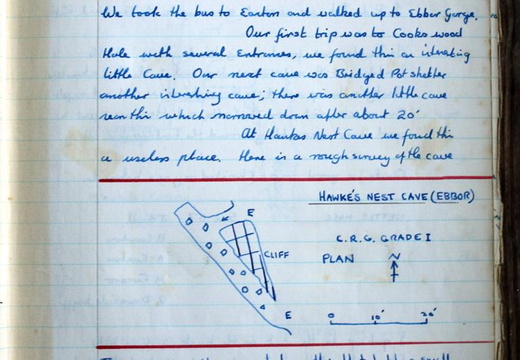 We took the bus to Easton and walked up to Ebbor Gorge.
Our first trip was to Cooks wood
Hole with several Entrances, we found this an intersting
little Cave. Our next cave was Bridged Pot shelter
another intersting cave; there was another little cave
near this which narrowed down after about 20'
At Hawkes Nest Cave we found this
a useless place. Here is a rough survey of the cave
HAWKE'S NEST CAVE (EBBOR)
E
C.R.G. GRADE I
CLIFF
PLAN N
E
0 10' 20'